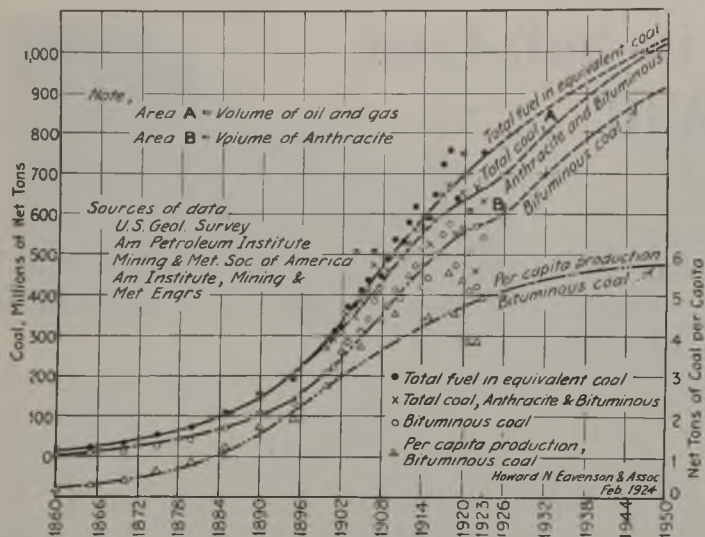 1,000
900
800
700
600
500
400
300
200
100
0
Coal, Millions of Net Tons
Note,
Area A = Volume of oil and gas
Area B = Volume of Anthracite
Sources of data,
U.S. Geol. Survey
Am Petroleum Institute
Mining & Met. Soc of America
Am Institute, Mining &
Met Engrs
Total fuel in equivalent coal
A
Total coal,
Anthracite and Bituminous
Bituminous coal
B
Per capita production
Bituminous coal
6
5
4
3
2
1
0
Net Tons of Coal per Capita
• Total fuel in equivalent coal
× Total coal, Anthracite & Bituminous
○ Bituminous coal
△ Per capita production,
Bituminous coal
Howard N Eavenson & Assoc
Feb. 1924
1860
1866
1872
1878
1884
1890
1896
1902
1908
1914
1920
1923
1926
1932
1938
1944
1950